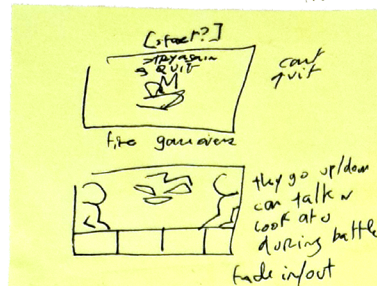 [start?]
>try again
QUIT
can't
quit
fire gameovers
they go up/down
can talk n
look at u
during battle
fade in/out